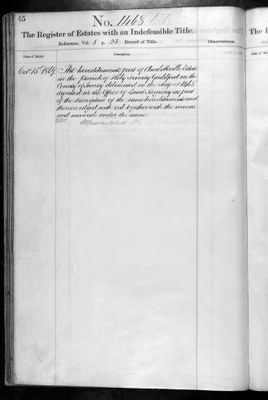 45
No. 1168
The Register of Estates with an Indefeasible Title.
Reference, Vol. 5 p. 33. Record of Title.
Observations.
Date of Entry.
Description.
Oct 15th 1869
The hereditaments part of
in the Parish of Holy Trinity Guildford in the
County of Surrey delineated in the Map
deposited in the Office of Land Registry as part
of the description of the same hereditaments and
thereon edged with red together with the mines
and minerals under the same
The Regist